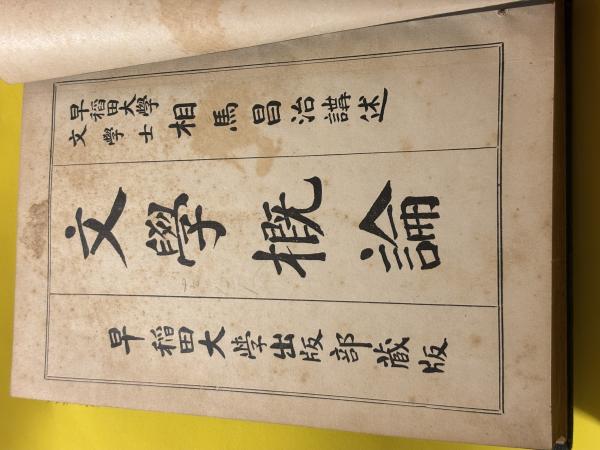 早稲田大學
文學士
相馬昌治講述
文學概論
早稲田大學出版部蔵版